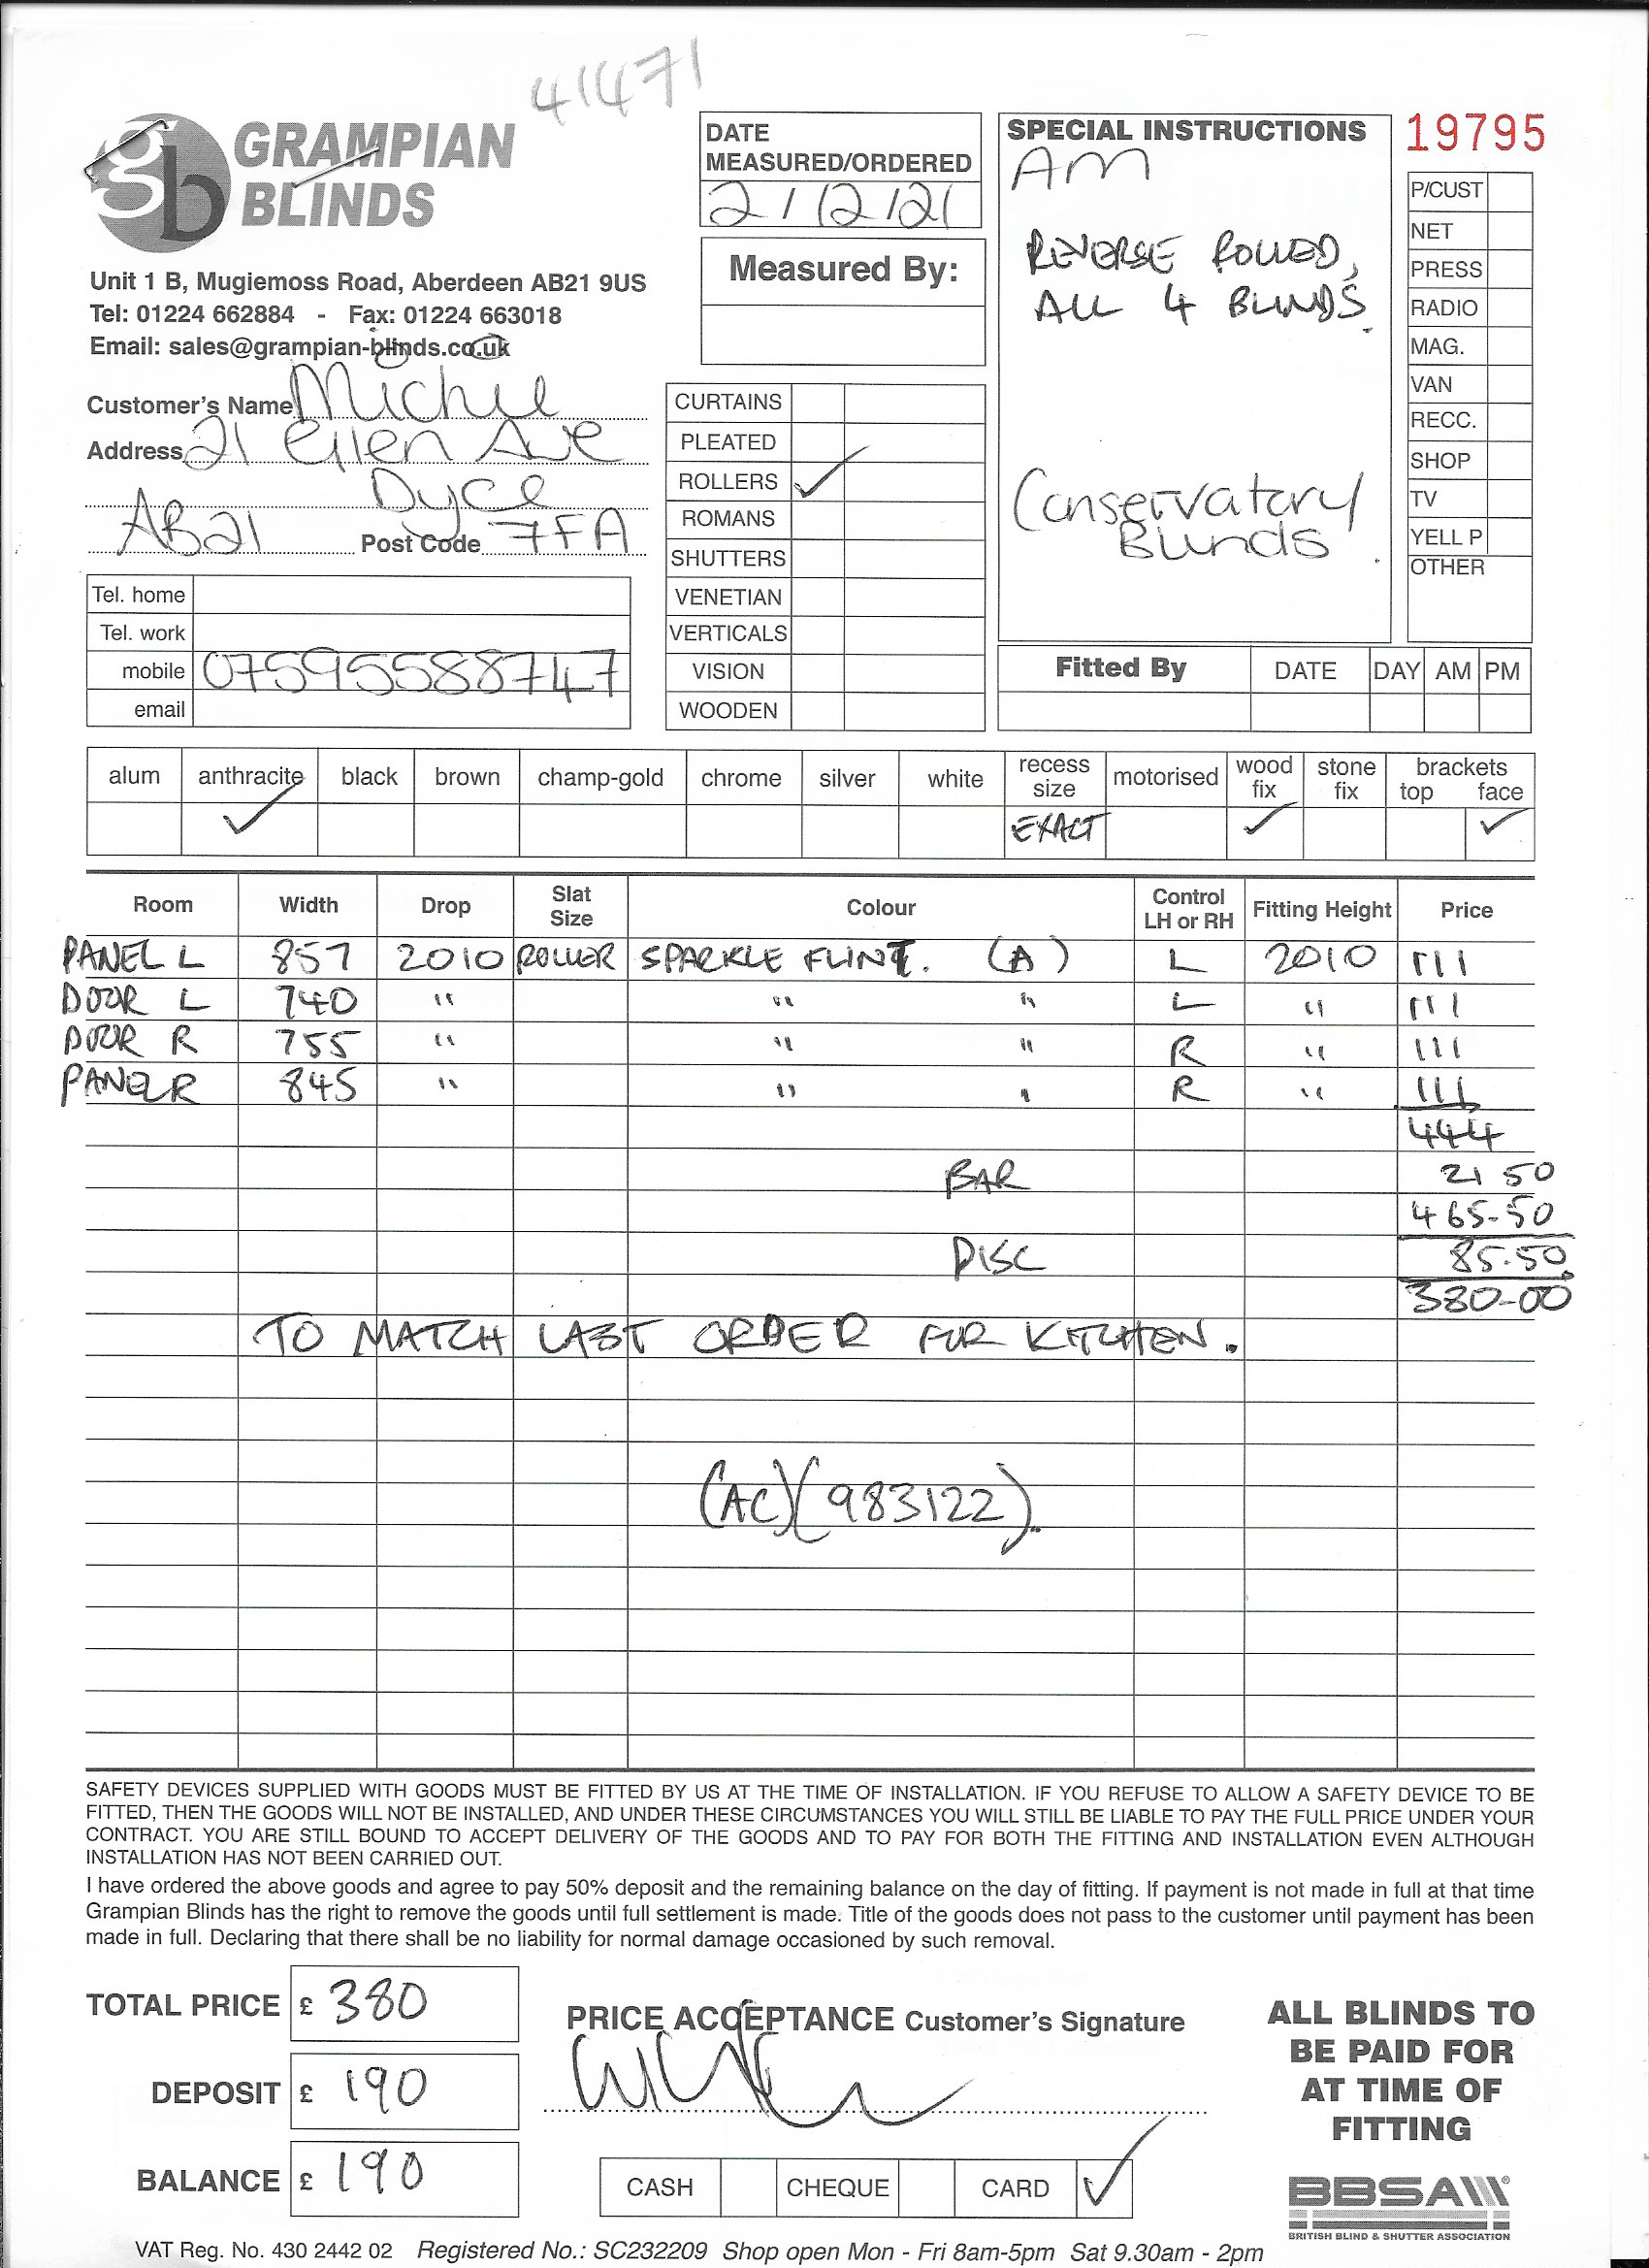 41471
gb GRAMPIAN
BLINDS
Unit 1 B, Mugiemoss Road, Aberdeen AB21 9US
Tel: 01224 662884 - Fax: 01224 663018
Email: sales@grampian-blinds.co.uk
Customer's Name Michie
Address 21 Ellen Ave
Dyce
AB21 Post Code 7FA
Tel. home
Tel. work
mobile 07595588747
email
DATE
MEASURED/ORDERED
2/12/21
Measured By:
CURTAINS
PLEATED
ROLLERS ✓
ROMANS
SHUTTERS
VENETIAN
VERTICALS
VISION
WOODEN
SPECIAL INSTRUCTIONS
AM
REVERSE ROLLED,
ALL 4 BLINDS.
Conservatory
Blinds
19795
P/CUST
NET
PRESS
RADIO
MAG.
VAN
RECC.
SHOP
TV
YELL P
OTHER
Fitted By DATE DAY AM PM
alum anthracite black brown champ-gold chrome silver white recess size motorised wood fix stone fix brackets top face
✓ EXACT ✓ ✓
Room Width Drop Slat Size Colour Control LH or RH Fitting Height Price
PANEL L 857 2010 ROLLER SPARKLE FLINT. (A) L 2010 111
DOOR L 740 " " " L " 111
DOOR R 755 " " " R " 111
PANEL R 845 " " " R " 111
444
BAR 21 50
465-50
DISC 85.50
380-00
TO MATCH LAST ORDER FOR KITCHEN.
(AC)(983122).
SAFETY DEVICES SUPPLIED WITH GOODS MUST BE FITTED BY US AT THE TIME OF INSTALLATION. IF YOU REFUSE TO ALLOW A SAFETY DEVICE TO BE
FITTED, THEN THE GOODS WILL NOT BE INSTALLED, AND UNDER THESE CIRCUMSTANCES YOU WILL STILL BE LIABLE TO PAY THE FULL PRICE UNDER YOUR
CONTRACT. YOU ARE STILL BOUND TO ACCEPT DELIVERY OF THE GOODS AND TO PAY FOR BOTH THE FITTING AND INSTALLATION EVEN ALTHOUGH
INSTALLATION HAS NOT BEEN CARRIED OUT.
I have ordered the above goods and agree to pay 50% deposit and the remaining balance on the day of fitting. If payment is not made in full at that time
Grampian Blinds has the right to remove the goods until full settlement is made. Title of the goods does not pass to the customer until payment has been
made in full. Declaring that there shall be no liability for normal damage occasioned by such removal.
TOTAL PRICE £ 380
DEPOSIT £ 190
BALANCE £ 190
PRICE ACCEPTANCE Customer's Signature
CASH CHEQUE CARD ✓
ALL BLINDS TO
BE PAID FOR
AT TIME OF
FITTING
BBSA
BRITISH BLIND & SHUTTER ASSOCIATION
VAT Reg. No. 430 2442 02 Registered No.: SC232209 Shop open Mon - Fri 8am-5pm Sat 9.30am - 2pm